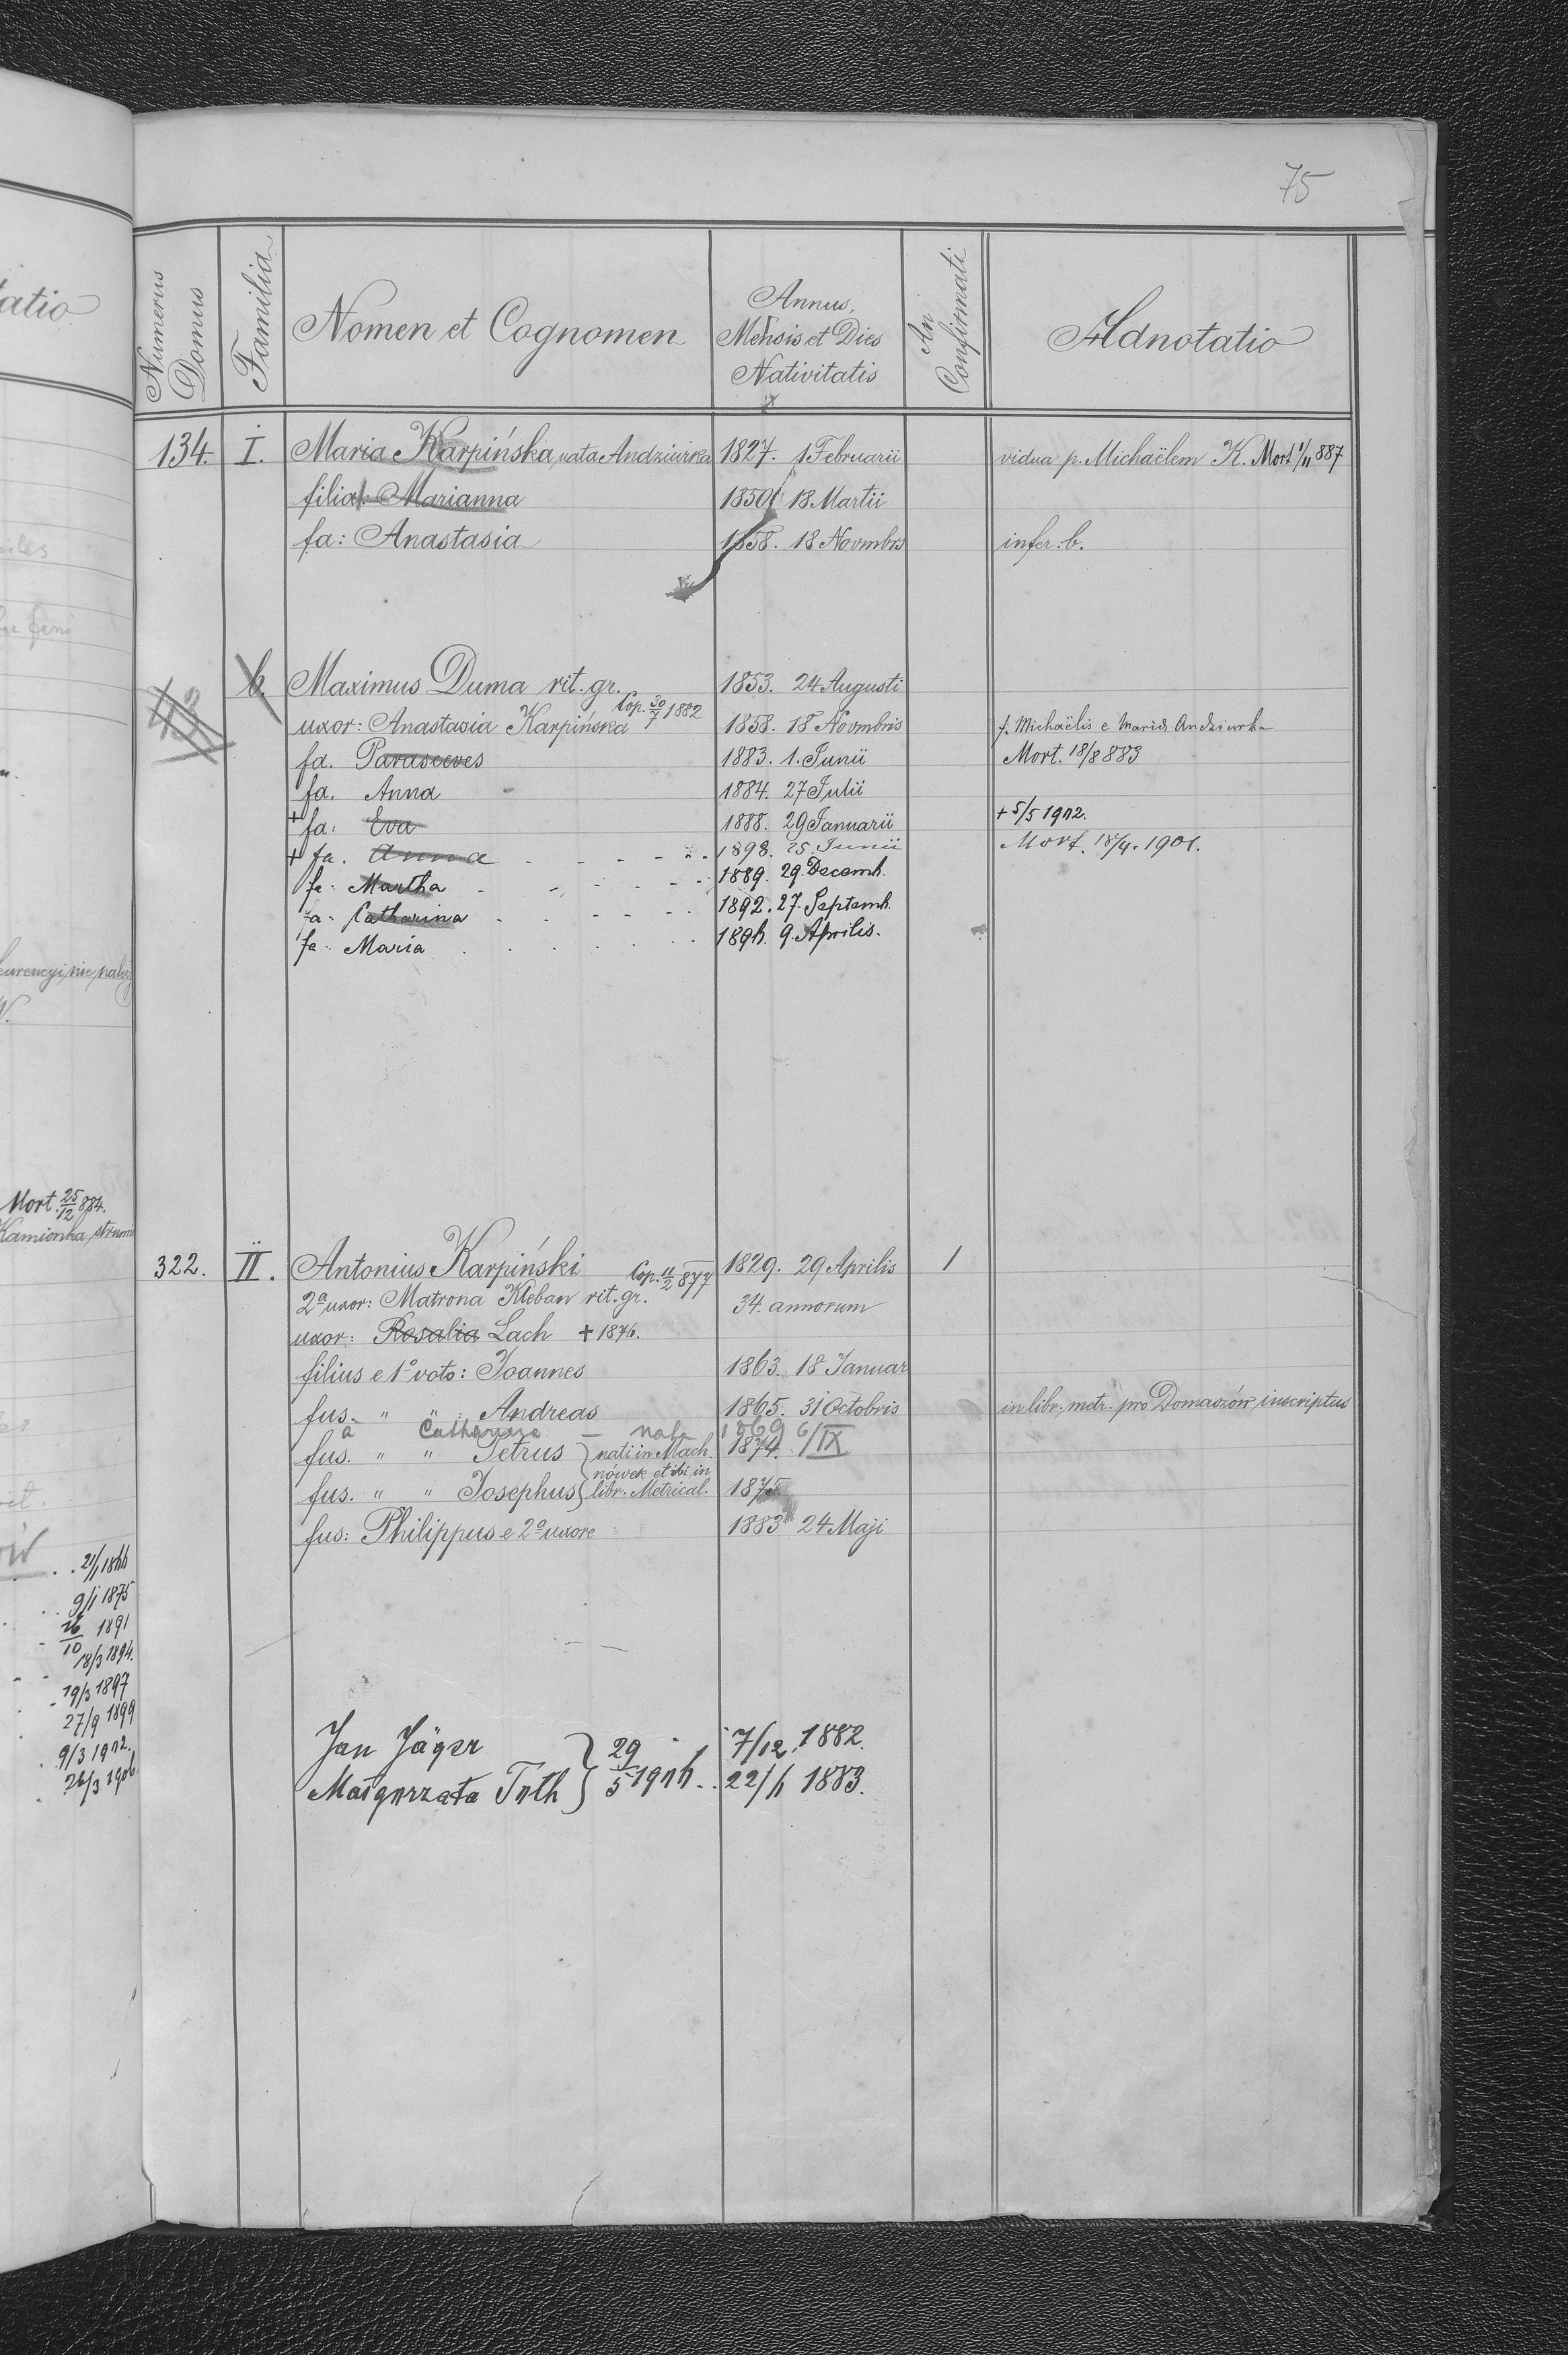 75
Numerus Domus
Familia
Nomen et Cognomen
Annus,
Mensis et Dies
Nativitatis
An Confirmati
Adnotatio
134. I. Maria Karpińska nata Andziurka 1827. 1 Februarii vidua p. Michaëlem K. Mort 1/11 887
filia: Marianna 1850 18 Martii
fa: Anastasia 1858. 18 Novmbris infer. b.
b. Maximus Duma rit. gr. 1853. 24 Augusti
Cop. 30/7 1882
uxor: Anastasia Karpińska 1858. 18 Novmbris f. Michaëlis e Maria Andziurka
fa. Parasceves 1883. 1. Junii Mort. 18/8 883
fa. Anna 1884. 27 Julii
+ fa: Eva 1888. 29 Januarii + 5/5 1902.
+ fa. Anna 1898. 25. Junii Mort. 18/4. 1901.
fa: Martha 1889. 29. Decemb.
fa: Catharina 1892. 27. Septemb.
fa: Maria 9. Aprilis.
322. II. Antonius Karpiński Cop. 11/2 877 1829. 29 Aprilis 1
2a uxor: Matrona Kleban rit. gr. 34. annorum
uxor: Rosalia Lach + 1876.
filius e 1o voto: Joannes 1863. 18 Januar
fus. " " Andreas 1865. 31 Octobris in libr. metr. pro Domazów inscriptus
a Catharina — nata 1869 6/IX
fus. " " Petrus } nati in Mach 1874.
nówek et ibi in
fus. " " Josephus } libr. Metrical. 1875
fus: Philippus e 2a uxore 1883 24 Maji
Jan Jäger } 29/5 7/12. 1882.
Małgorzata Toth 1883.
tatio
Mort. 25/12 884.
Kamionka
9/1 1875
26/10 1891
18/3 1894.
19/3 1897
27/9 1899
9/3 1902.
26/3 1906